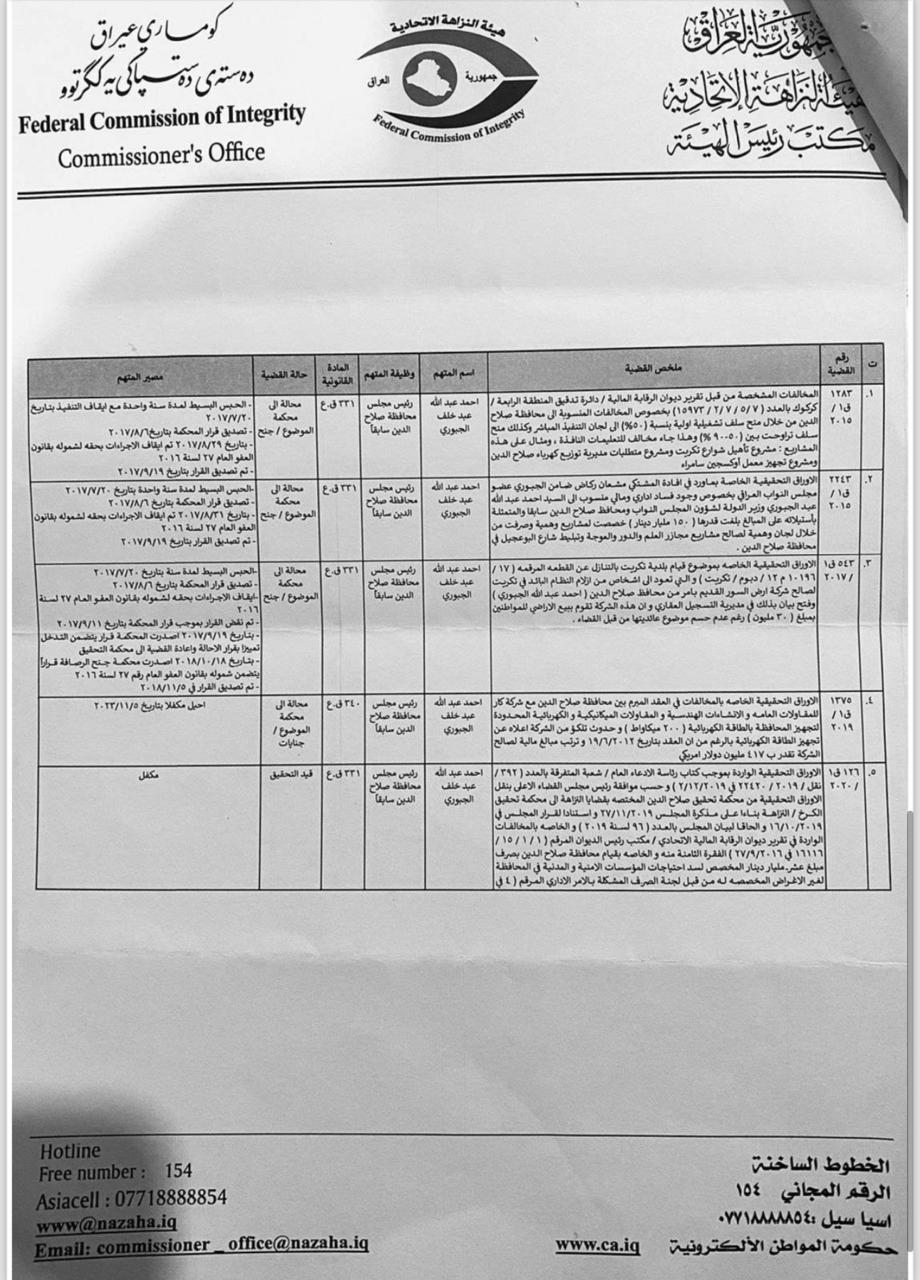 جمهورية العراق
هيئة النزاهة الاتحادية
مكتب رئيس الهيئة
هيئة النزاهة الاتحادية
جمهورية
العراق
Federal Commission of Integrity
كۆماری عیراق
دەستەی دەستپاکی یەکگرتوو
Federal Commission of Integrity
Commissioner's Office
ت
رقم القضية
ملخص القضية
اسم المتهم
وظيفة المتهم
المادة القانونية
حالة القضية
مصير المتهم
١.
١٢٨٣
ق١/
٢٠١٥
المخالفات المشخصة من قبل تقرير ديوان الرقابة المالية / دائرة تدقيق المنطقة الرابعة /
كركوك بالعدد (٧/٥/ ٢/٧ /١٥٩٧٣) بخصوص المخالفات المنسوبة الى محافظة صلاح
الدين من خلال منح سلف تشغيلية اولية بنسبة (٥٠%) الى لجان التنفيذ المباشر وكذلك منح
سلف تراوحت بين (٥٠-٩٠ %) وهذا جاء مخالف للتعليمات النافذة ، ومثال على هذه
المشاريع : مشروع تأهيل شوارع تكريت ومشروع متطلبات مديرية توزيع كهرباء صلاح الدين
ومشروع تجهيز معمل أوكسجين سامراء
احمد عبد الله
عبد خلف
الجبوري
رئيس مجلس
محافظة صلاح
الدين سابقاً
٣٣١ ق.ع
محالة الى
محكمة
الموضوع / جنح
- الحبس البسيط لمدة سنة واحدة مع ايقاف التنفيذ بتاريخ
٢٠١٧/٧/٢٠
- تصديق قرار المحكمة بتاريخ ٢٠١٧/٨/٦
- بتاريخ ٢٠١٧/٨/٢٩ تم ايقاف الاجراءات بحقه لشموله بقانون
العفو العام ٢٧ لسنة ٢٠١٦
- تم تصديق القرار بتاريخ ٢٠١٧/٩/١٩
٢.
٢٢٤٣
ق١/
٢٠١٥
الاوراق التحقيقية الخاصة بماورد في افادة المشتكي مشعان ركاض ضامن الجبوري عضو
مجلس النواب العراقي بخصوص وجود فساد اداري ومالي منسوب الى السيد احمد عبد الله
عبد الجبوري وزير الدولة لشؤون المجلس النواب ومحافظ صلاح الدين سابقا والمتمثلة
بأستيلائه على المبالغ بلغت قدرها (١٥٠ مليار دينار) خصصت لمشاريع وهمية وصرفت من
خلال لجان وهمية لصالح مشاريع مجازر العلم والدور والعوجة وتبليط شارع البوعجيل في
محافظة صلاح الدين .
احمد عبد الله
عبد خلف
الجبوري
رئيس مجلس
محافظة صلاح
الدين سابقاً
٣٣١ ق.ع
محالة الى
محكمة
الموضوع / جنح
-الحبس البسيط لمدة سنة واحدة بتاريخ ٢٠١٧/٧/٢٠
- تصديق قرار المحكمة بتاريخ ٢٠١٧/٨/٦
- بتاريخ ٢٠١٧/٨/٣١ تم ايقاف الاجراءات بحقه لشموله بقانون
العفو العام ٢٧ لسنة ٢٠١٦
- تم تصديق القرار بتاريخ ٢٠١٧/٩/١٩
٣.
٥٤٣ ق١
/٢٠١٧
الاوراق التحقيقية الخاصه بموضوع قيام بلدية تكريت بالتنازل عن القطعه المرقمه (١٧ /
١٠١٩٦ م ١٢ / ديوم / تكريت ) و التي تعود الى اشخاص من ازلام النظام البائد في تكريت
لصالح شركة ارض السور القديم بامر من محافظ صلاح الدين ( احمد عبد الله الجبوري )
وفتح بيان بذلك في مديرية التسجيل العقاري و ان هذه الشركة تقوم ببيع الاراضي للمواطنين
بمبلغ (٣٠ مليون) رغم عدم حسم موضوع عائديتها من قبل القضاء .
احمد عبد الله
عبد خلف
الجبوري
رئيس مجلس
محافظة صلاح
الدين سابقاً
٣٣١ ق.ع
محالة الى
محكمة
الموضوع / جنح
-الحبس البسيط لمدة سنة بتاريخ ٢٠١٧/٧/٢٠
- تصديق قرار المحكمة بتاريخ ٢٠١٧/٨/٦
-ايقاف الاجراءات بحقه لشموله بقانون العفو العام ٢٧ لسنة
٢٠١٦
- تم نقض القرار بموجب قرار المحكمة بتاريخ ٢٠١٧/٩/١١
- بتاريخ ٢٠١٧/٩/١٩ اصدرت المحكمة قرار يتضمن التدخل
تمييزا بقرار الاحالة واعادة القضية الى محكمة التحقيق
- بتاريخ ٢٠١٨/١٠/١٨ اصدرت محكمة جنح الرصافة قراراً
يتضمن شموله بقانون العفو العام رقم ٢٧ لسنة ٢٠١٦
- تم تصديق القرار في ٢٠١٨/١١/٥
٤.
١٣٧٥
ق١/
٢٠١٩
الاوراق التحقيقية الخاصه بالمخالفات في العقد المبرم بين محافظة صلاح الدين مع شركة كار
للمقاولات العامه و الانشاءات الهندسية و المقاولات الميكانيكية و الكهربائية المحدودة
لتجهيز المحافظة بالطاقة الكهربائية (٢٠٠ ميكاواط ) و حدوث تلكؤ من الشركة اعلاه عن
تجهيز الطاقة الكهربائية بالرغم من ان العقد بتاريخ ١٩/٦/٢٠١٢ و ترتب مبالغ مالية لصالح
الشركة تقدر ب ٤١٧ مليون دولار امريكي
احمد عبد الله
عبد خلف
الجبوري
رئيس مجلس
محافظة صلاح
الدين سابقاً
٣٤٠ ق.ع
محالة الى
محكمة
الموضوع /
جنايات
احيل مكفلا بتاريخ ٢٠٢٣/١١/٥
٥.
١٢٦ ق١
/٢٠٢٠
الاوراق التحقيقية الواردة بموجب كتاب رئاسة الادعاء العام / شعبة المتفرقة بالعدد (٣٩٢/
نقل / ٢٠١٩ / ٢٢٤٢٠ في ٢/١٢/٢٠١٩ ) و حسب موافقة رئيس مجلس القضاء الاعلى بنقل
الاوراق التحقيقية من محكمة تحقيق صلاح الدين المختصه بقضايا النزاهة الى محكمة تحقيق
الكرخ / النزاهة بناءا على مذكرة المجلس ٢٧/١١/٢٠١٩ و استنادا لقرار المجلس في
١٦/١٠/٢٠١٩ و الحاقا لبيان المجلس بالعدد (٩٦ لسنة ٢٠١٩) و الخاصه بالمخالفات
الواردة في تقرير ديوان الرقابة المالية الاتحادي / مكتب رئيس الديوان المرقم (١ /١ /١٥ /
١٦١١٦ في ٢٧/٩/٢٠١٦ ) الفقرة الثامنة منه و الخاصه بقيام محافظة صلاح الدين بصرف
مبلغ عشر مليار دينار المخصص لسد احتياجات المؤسسات الامنية و المدنية في المحافظة
لغير الاغراض المخصصه له من قبل لجنة الصرف المشكلة بالامر الاداري المرقم ( ٤ في
احمد عبد الله
عبد خلف
الجبوري
رئيس مجلس
محافظة صلاح
الدين سابقاً
٣٣١ ق.ع
قيد التحقيق
مكفل
الخطوط الساخنة
الرقم المجاني ١٥٤
اسيا سيل :٠٧٧١٨٨٨٨٨٥٤
حكومة المواطن الألكترونية www.ca.iq
Hotline
Free number : 154
Asiacell : 07718888854
www@nazaha.iq
Email: commissioner _ office@nazaha.iq